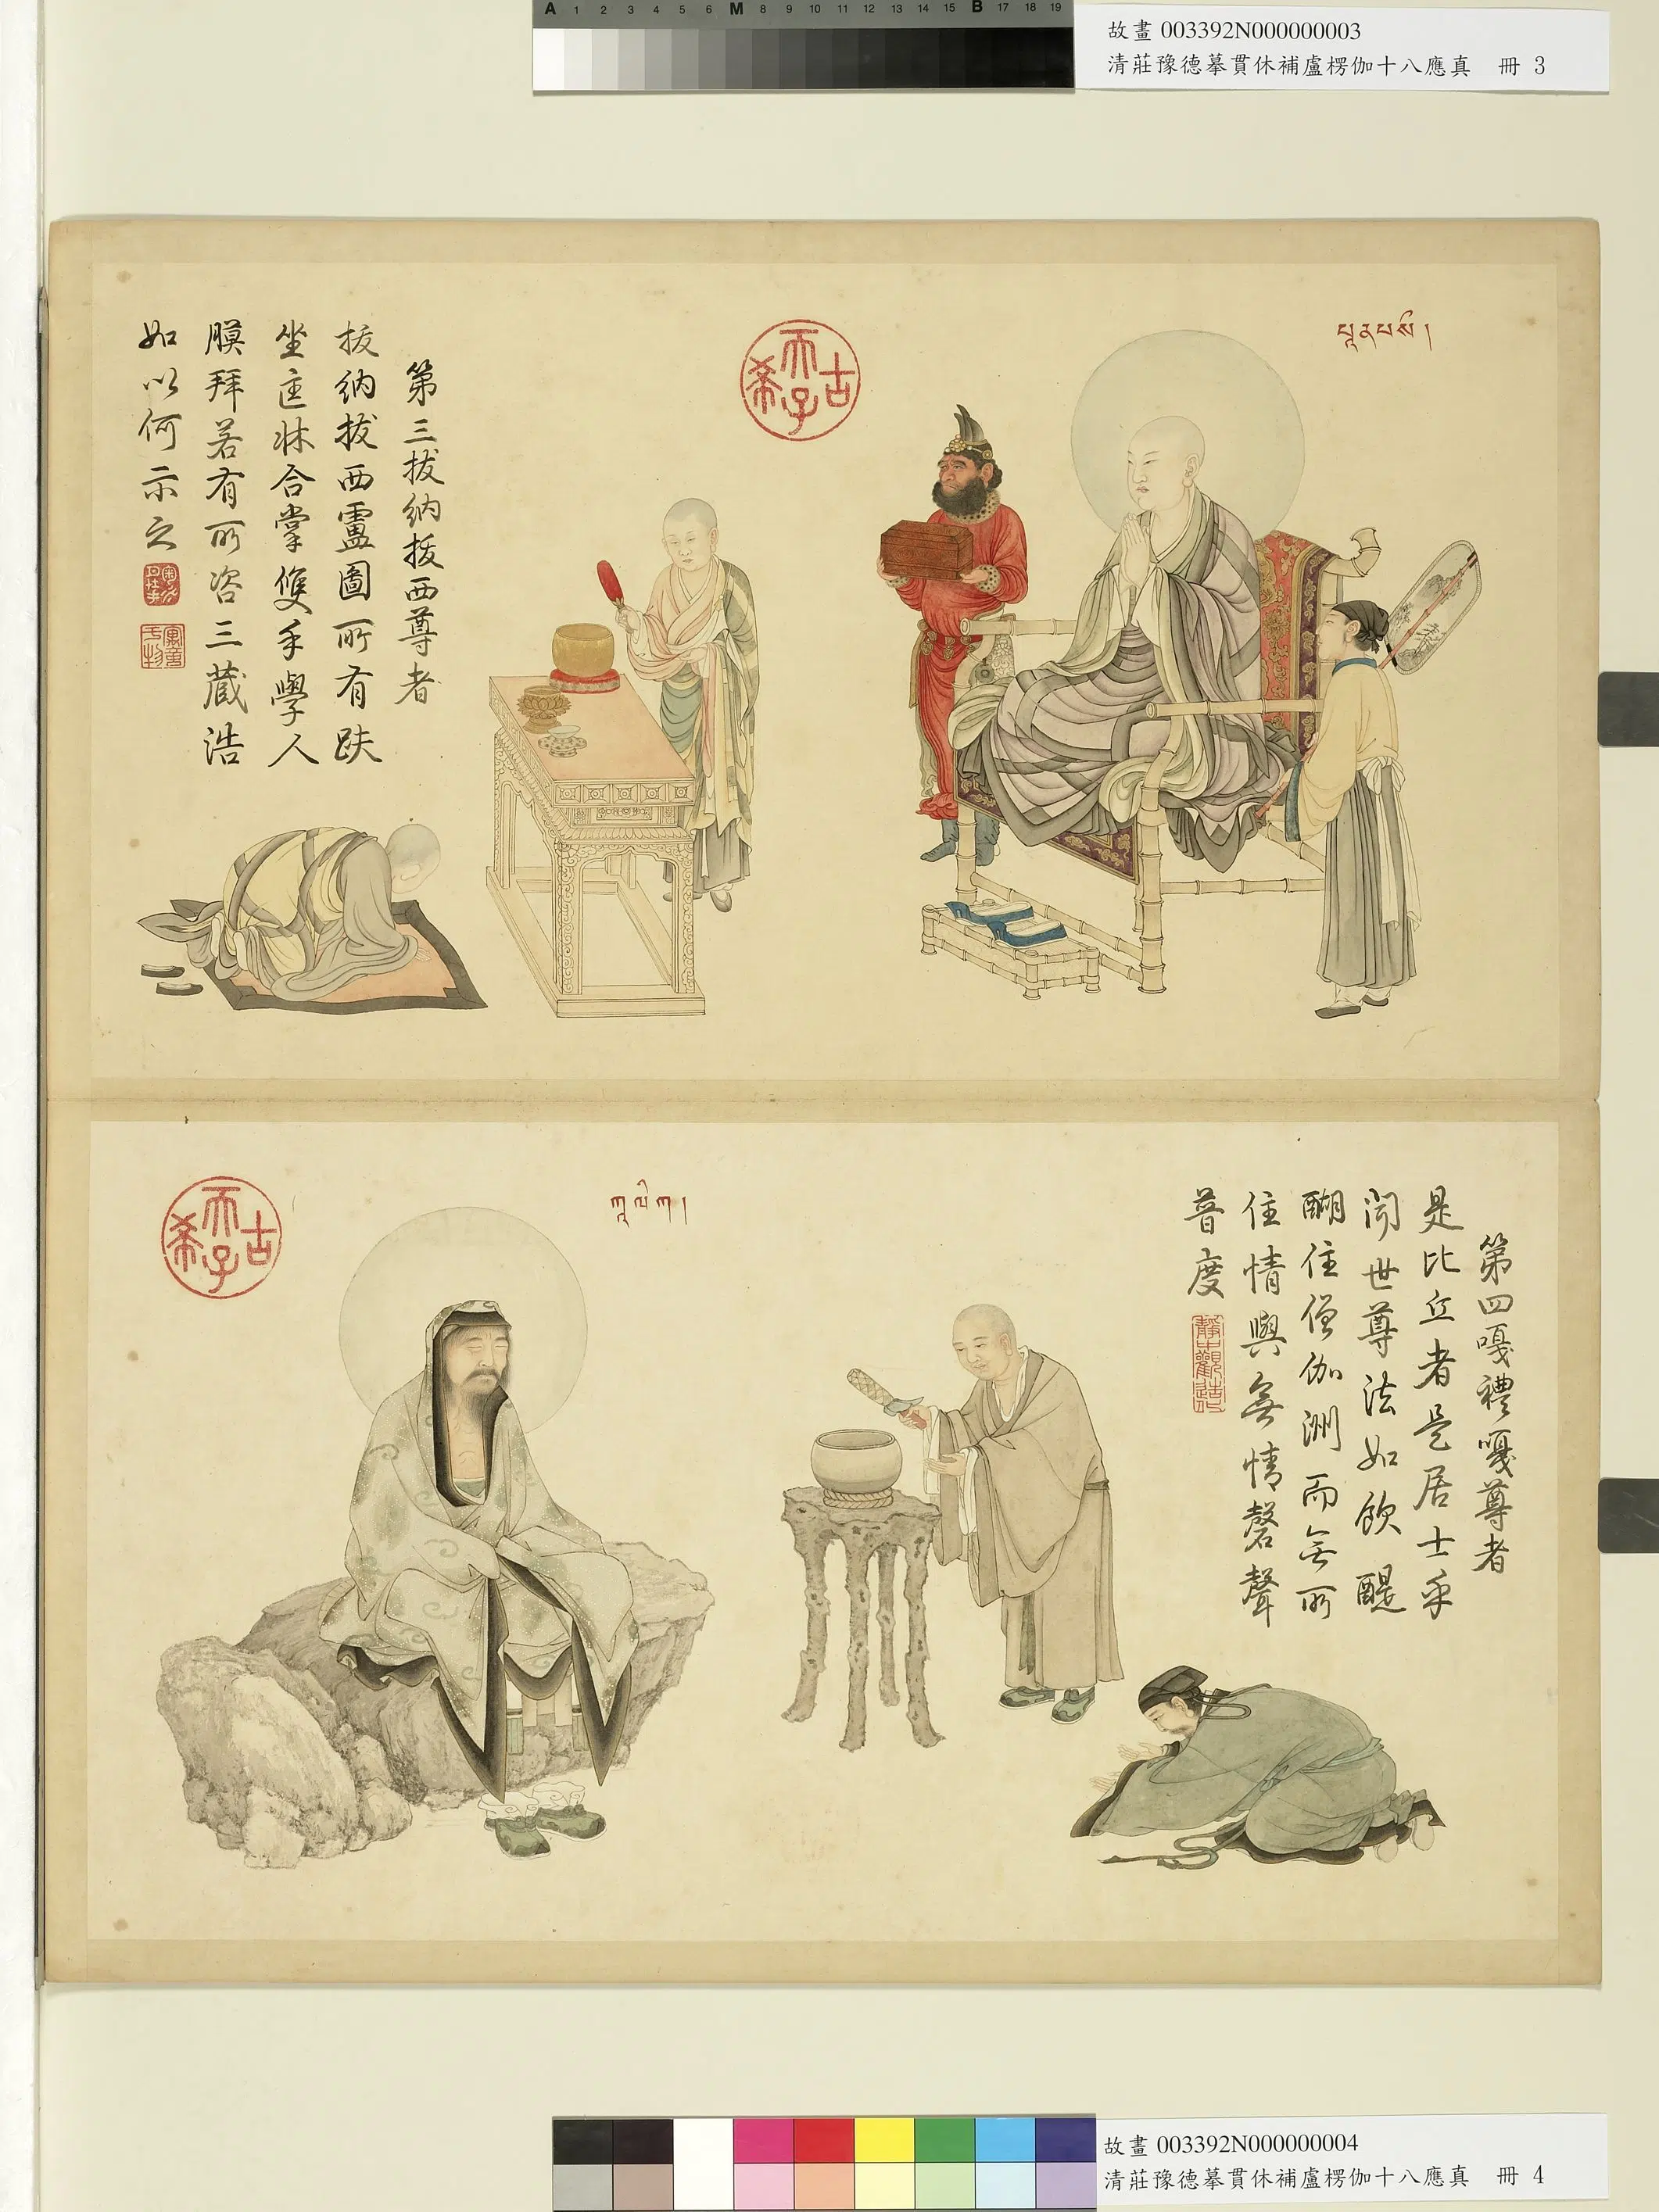 A 1 2 3 4 5 6 M 8 9 10 11 12 13 14 15 B 17 18 19
故畫 003392N000000003
清莊豫德摹貫休補盧楞伽十八應真 冊 3
པཱནཔསི།
古希天子
第三拔納拔西尊者
拔納拔西盧圖所有趺
坐匡牀合掌雙手學人
膜拜若有所咨三藏浩
如以何示之
寓意于物
第四嘎禮嘎尊者
是比丘者是居士乎
聞世尊法如飲醍
醐住僧伽洲而無所
住情與無情磬聲
普度
靜中觀造
ཀཱལིཀ།
古希天子
故畫 003392N000000004
清莊豫德摹貫休補盧楞伽十八應真 冊 4